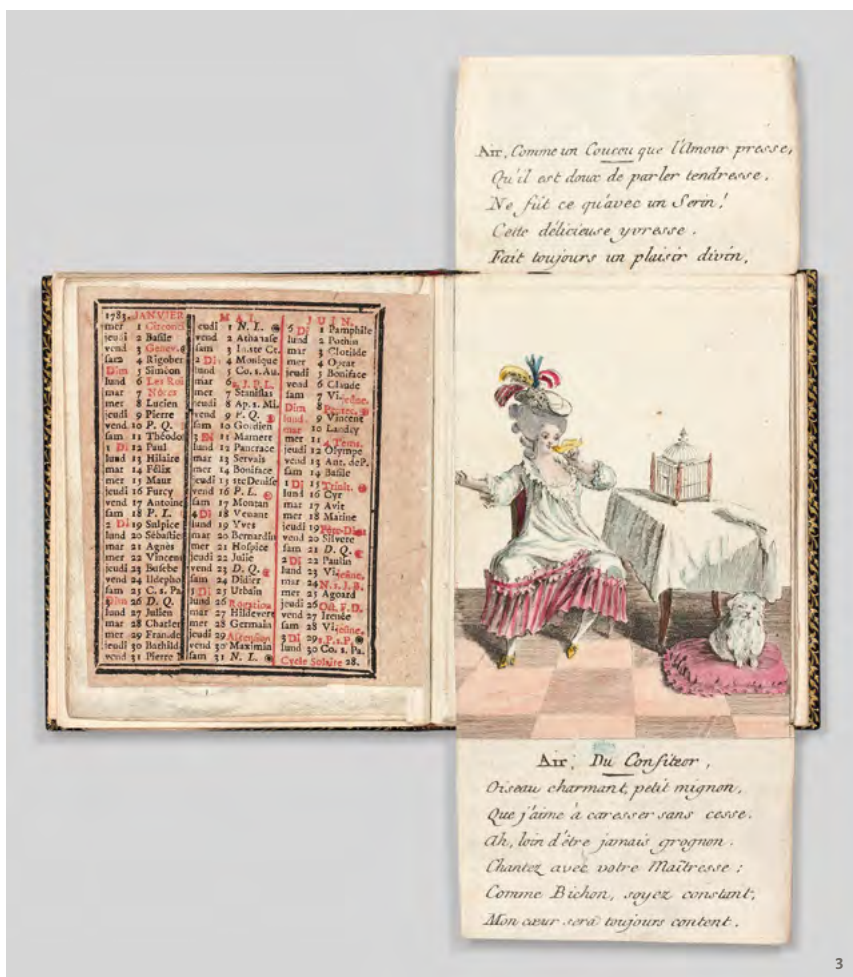 Air, Comme un Coucou que l'Amour presse,
Qu'il est doux de parler tendresse,
Ne fût ce qu'avec un Serin!
Cette délicieuse yvresse.
Fait toujours un plaisir divin,
1783. JANVIER
mer 1 Circonci
jeudi 2 Basile
vend 3 Genev.
sam 4 Rigober
Dim 5 Siméon
lund 6 Les Roi
mar 7 Nôces
mer 8 Lucien
jeudi 9 Pierre
vend. 10 P. Q.
sam 11 Théodo
1 Di 12 Paul
lund 13 Hilaire
mar 14 Félix
mer 15 Maur
jeudi 16 Furcy
vend 17 Antoine
sam 18 P. L.
2 Di 19 Sulpice
lund 20 Sébastien
mar 21 Agnès
mer 22 Vincent
jeudi 23 Eusebe
vend 24 Ildepho
sam 25 C. s. Pa
Dim 26 D. Q.
lund 27 Julien
mar 28 Charlem
mer 29 Franç. de
jeudi 30 Bathild
vend 31 Pierre
MAI.
jeudi 1 N. L.
vend 2 Athanase
sam 3 In. ste Cr.
2 Di 4 Monique
lund 5 Co. s. Au.
mar 6 s. J. P. L.
mer 7 Stanislas
jeudi 8 Ap. s. Mi.
vend 9 P. Q.
sam 10 Gordien
3 Di 11 Mamert
lund 12 Pancrace
mar 13 Servais
mer 14 Boniface
jeudi 15 ste Denise
vend 16 P. L.
sam 17 Montan
4 Di 18 Venant
lund 19 Yves
mar 20 Bernardin
mer 21 Hospice
jeudi 22 Julie
vend 23 D. Q.
sam 24 Didier
5 Di 25 Urbain
lund 26 Rogations
mar 27 Hildevert
mer 28 Germain
jeudi 29 Ascension
vend 30 Maximin
sam 31 N. L.
JUIN.
6 Di 1 Pamphile
lund 2 Pothin
mar 3 Clotilde
mer 4 Optat
jeudi 5 Boniface
vend 6 Claude
sam 7 Vi. jeûne.
Dim 8 Pentec.
lund. 9 Vincent
mar 10 Landry
mer 11 4 Tems.
jeudi 12 Olympe
vend 13 Ant. de P.
sam 14 Basile
1 Di 15 Trinit.
lund 16 Cyr
mar 17 Avit
mer 18 Marine
jeudi 19 Fête-Dieu
vend 20 Silvere
sam 21 D. Q.
2 Di 22 Paulin
lund 23 Vi. jeûne.
mar 24 N. s. J. B.
mer 25 Agoard
jeudi 26 Oct. F. D.
vend 27 Irenée
sam 28 Vi. jeûne.
3 Di 29 s. P. s. P.
lund 30 Co. s. Pa.
Cycle Solaire 28.
Air, Du Confiteor,
Oiseau charmant, petit mignon,
Que j'aime à caresser sans cesse.
Ah, loin d'être jamais grognon.
Chantez avec votre Maîtresse :
Comme Bichon, soyez constant,
Mon cœur sera toujours content.
3